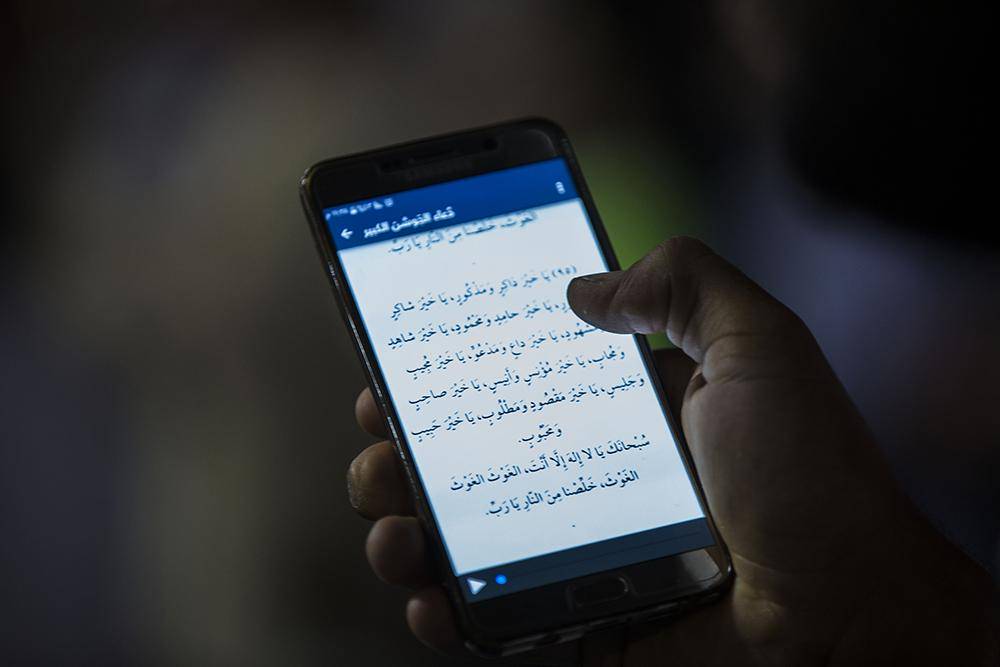 دُعاءُ الجَوشَن الكَبير
الغَوْثَ، خَلِّصْنا مِنَ النّارِ يَا رَبِّ.
(٩٥) يَا خَيْرَ ذاكِرٍ وَمَذْكُورٍ، يَا خَيْرَ شاكِرٍ
يَا خَيْرَ حامِدٍ وَمَحْمُودٍ، يَا خَيْرَ شاهِدٍ
يَا خَيْرَ داعٍ وَمَدْعُوٍّ، يَا خَيْرَ مُجِيبٍ
وَمُجابٍ، يَا خَيْرَ مُؤْنِسٍ وَأَنِيسٍ، يَا خَيْرَ صاحِبٍ
وَجَلِيسٍ، يَا خَيْرَ مَقْصُودٍ وَمَطْلُوبٍ، يَا خَيْرَ حَبِيبٍ
وَمَحْبُوبٍ.
سُبْحانَكَ يَا لا إِلهَ إِلَّا أَنْتَ، الغَوْثَ الغَوْثَ
الغَوْثَ، خَلِّصْنا مِنَ النّارِ يَا رَبِّ.